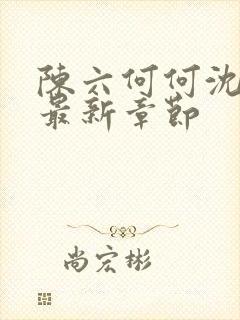 陳六何何沈
最新章節
尚宏彬